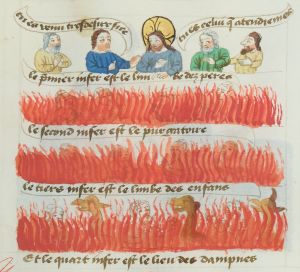 tu es venu tresdesire filz
tu es celui q̃ atendiemes
le p̃mier infer est le limbe des peres
le second infer est le purgatoire
le tiers infer est le limbe des enfans
Et le quart infer est le lieu des dampnes